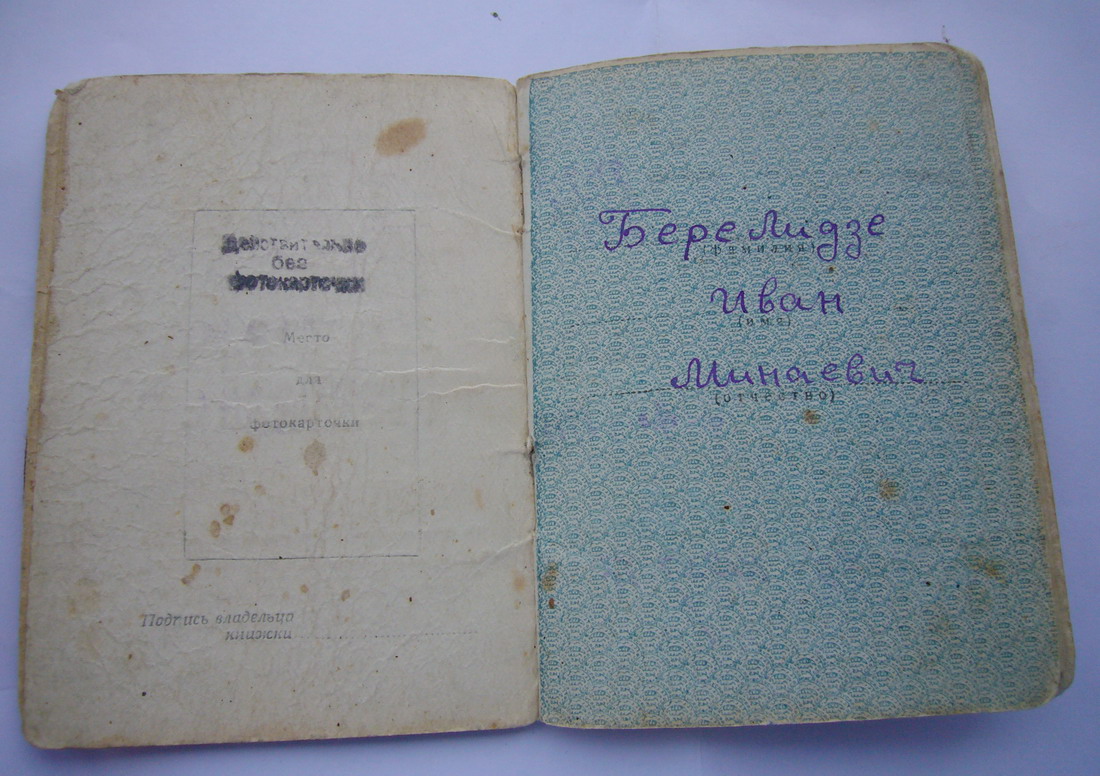 Действительно
без
фотокарточки
Место
для
фотокарточки
Подпись владельца
книжки
Беремидзе
(фамилия)
Иван
(имя)
Минаевич
(отчество)